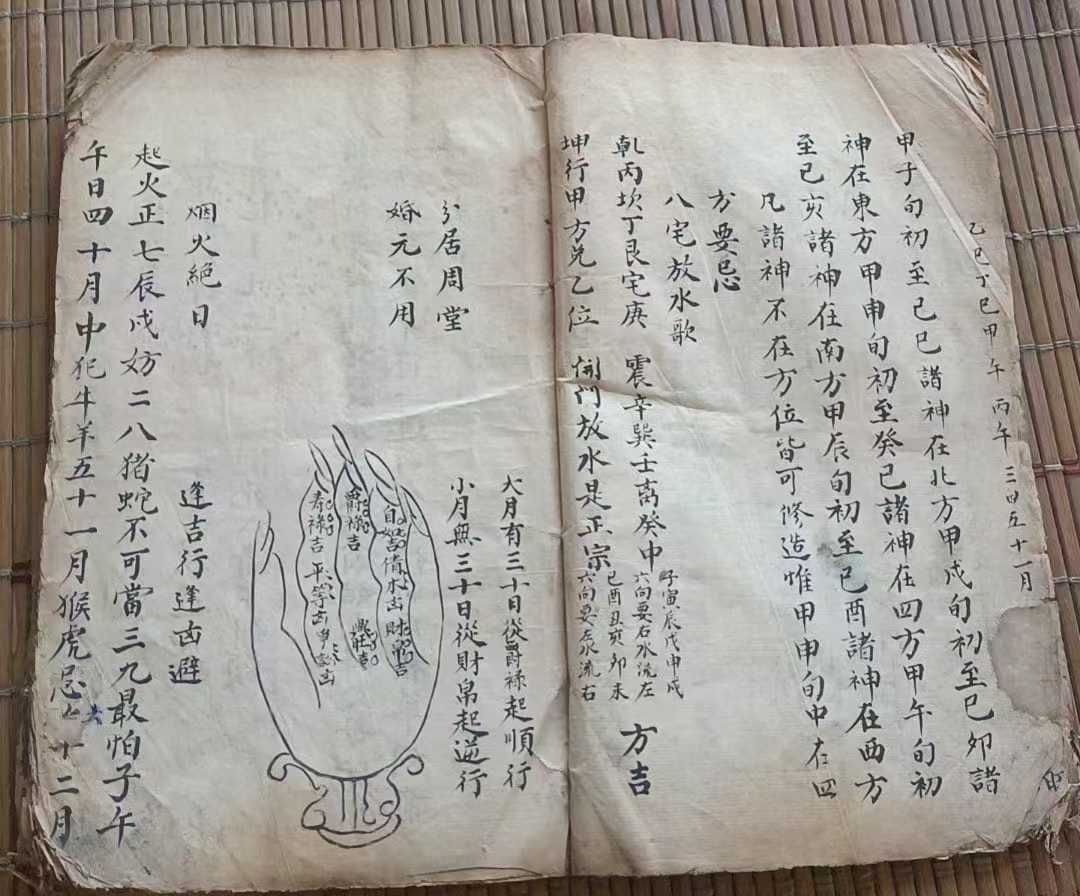 乙巳丁巳甲午 丙午 三四五十一月
甲子旬初至己巳諸神在北方甲戌旬初至己卯諸
神在東方甲申旬初至癸巳諸神在四方甲午旬初
至己亥諸神在南方甲辰旬初至己酉諸神在西方
凡諸神不在方位皆可修造惟甲申旬中在四
方要忌
八宅放水歌
乹丙坎丁艮宅庚 震辛巽壬离癸申
子寅辰戊申戌
六向要右水流左
方吉
坤行甲方兑乙位 開門放水是正宗
巳酉丑亥卯未
六向要水流右
分居周堂
婚元不用
大月有三十日從爵祿起順行
小月無三十日從財帛起逆行
財帛吉
爵祿吉
壽祿吉
平等凶
烟火絕日
逢吉行逢凶避
起火正七辰戌妨二八猪蛇不可當三九最怕子午
午日四十月中犯牛羊五十一月猴虎忌六十二月